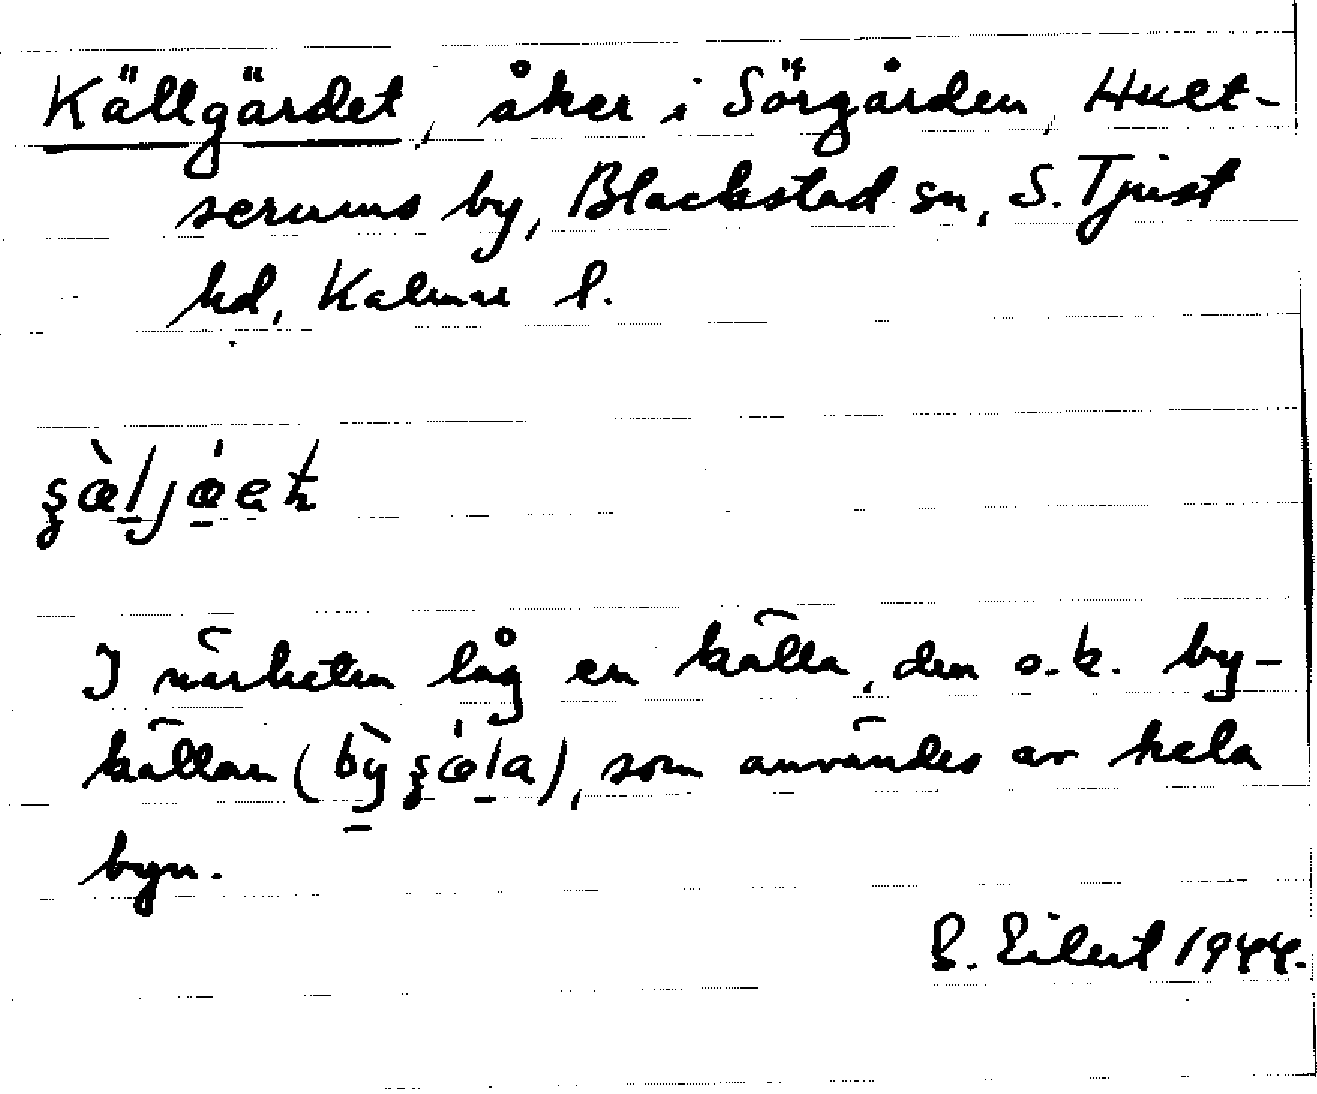 Källgärdet, åker i Sörgården, Hult-
serums by, Blackstad sn, S. Tjust
hd, Kalmar l.
I närheten låg en källa, den s.k. by-
källan (                ), som användes av hela
byn.
E. Eilert 1944.